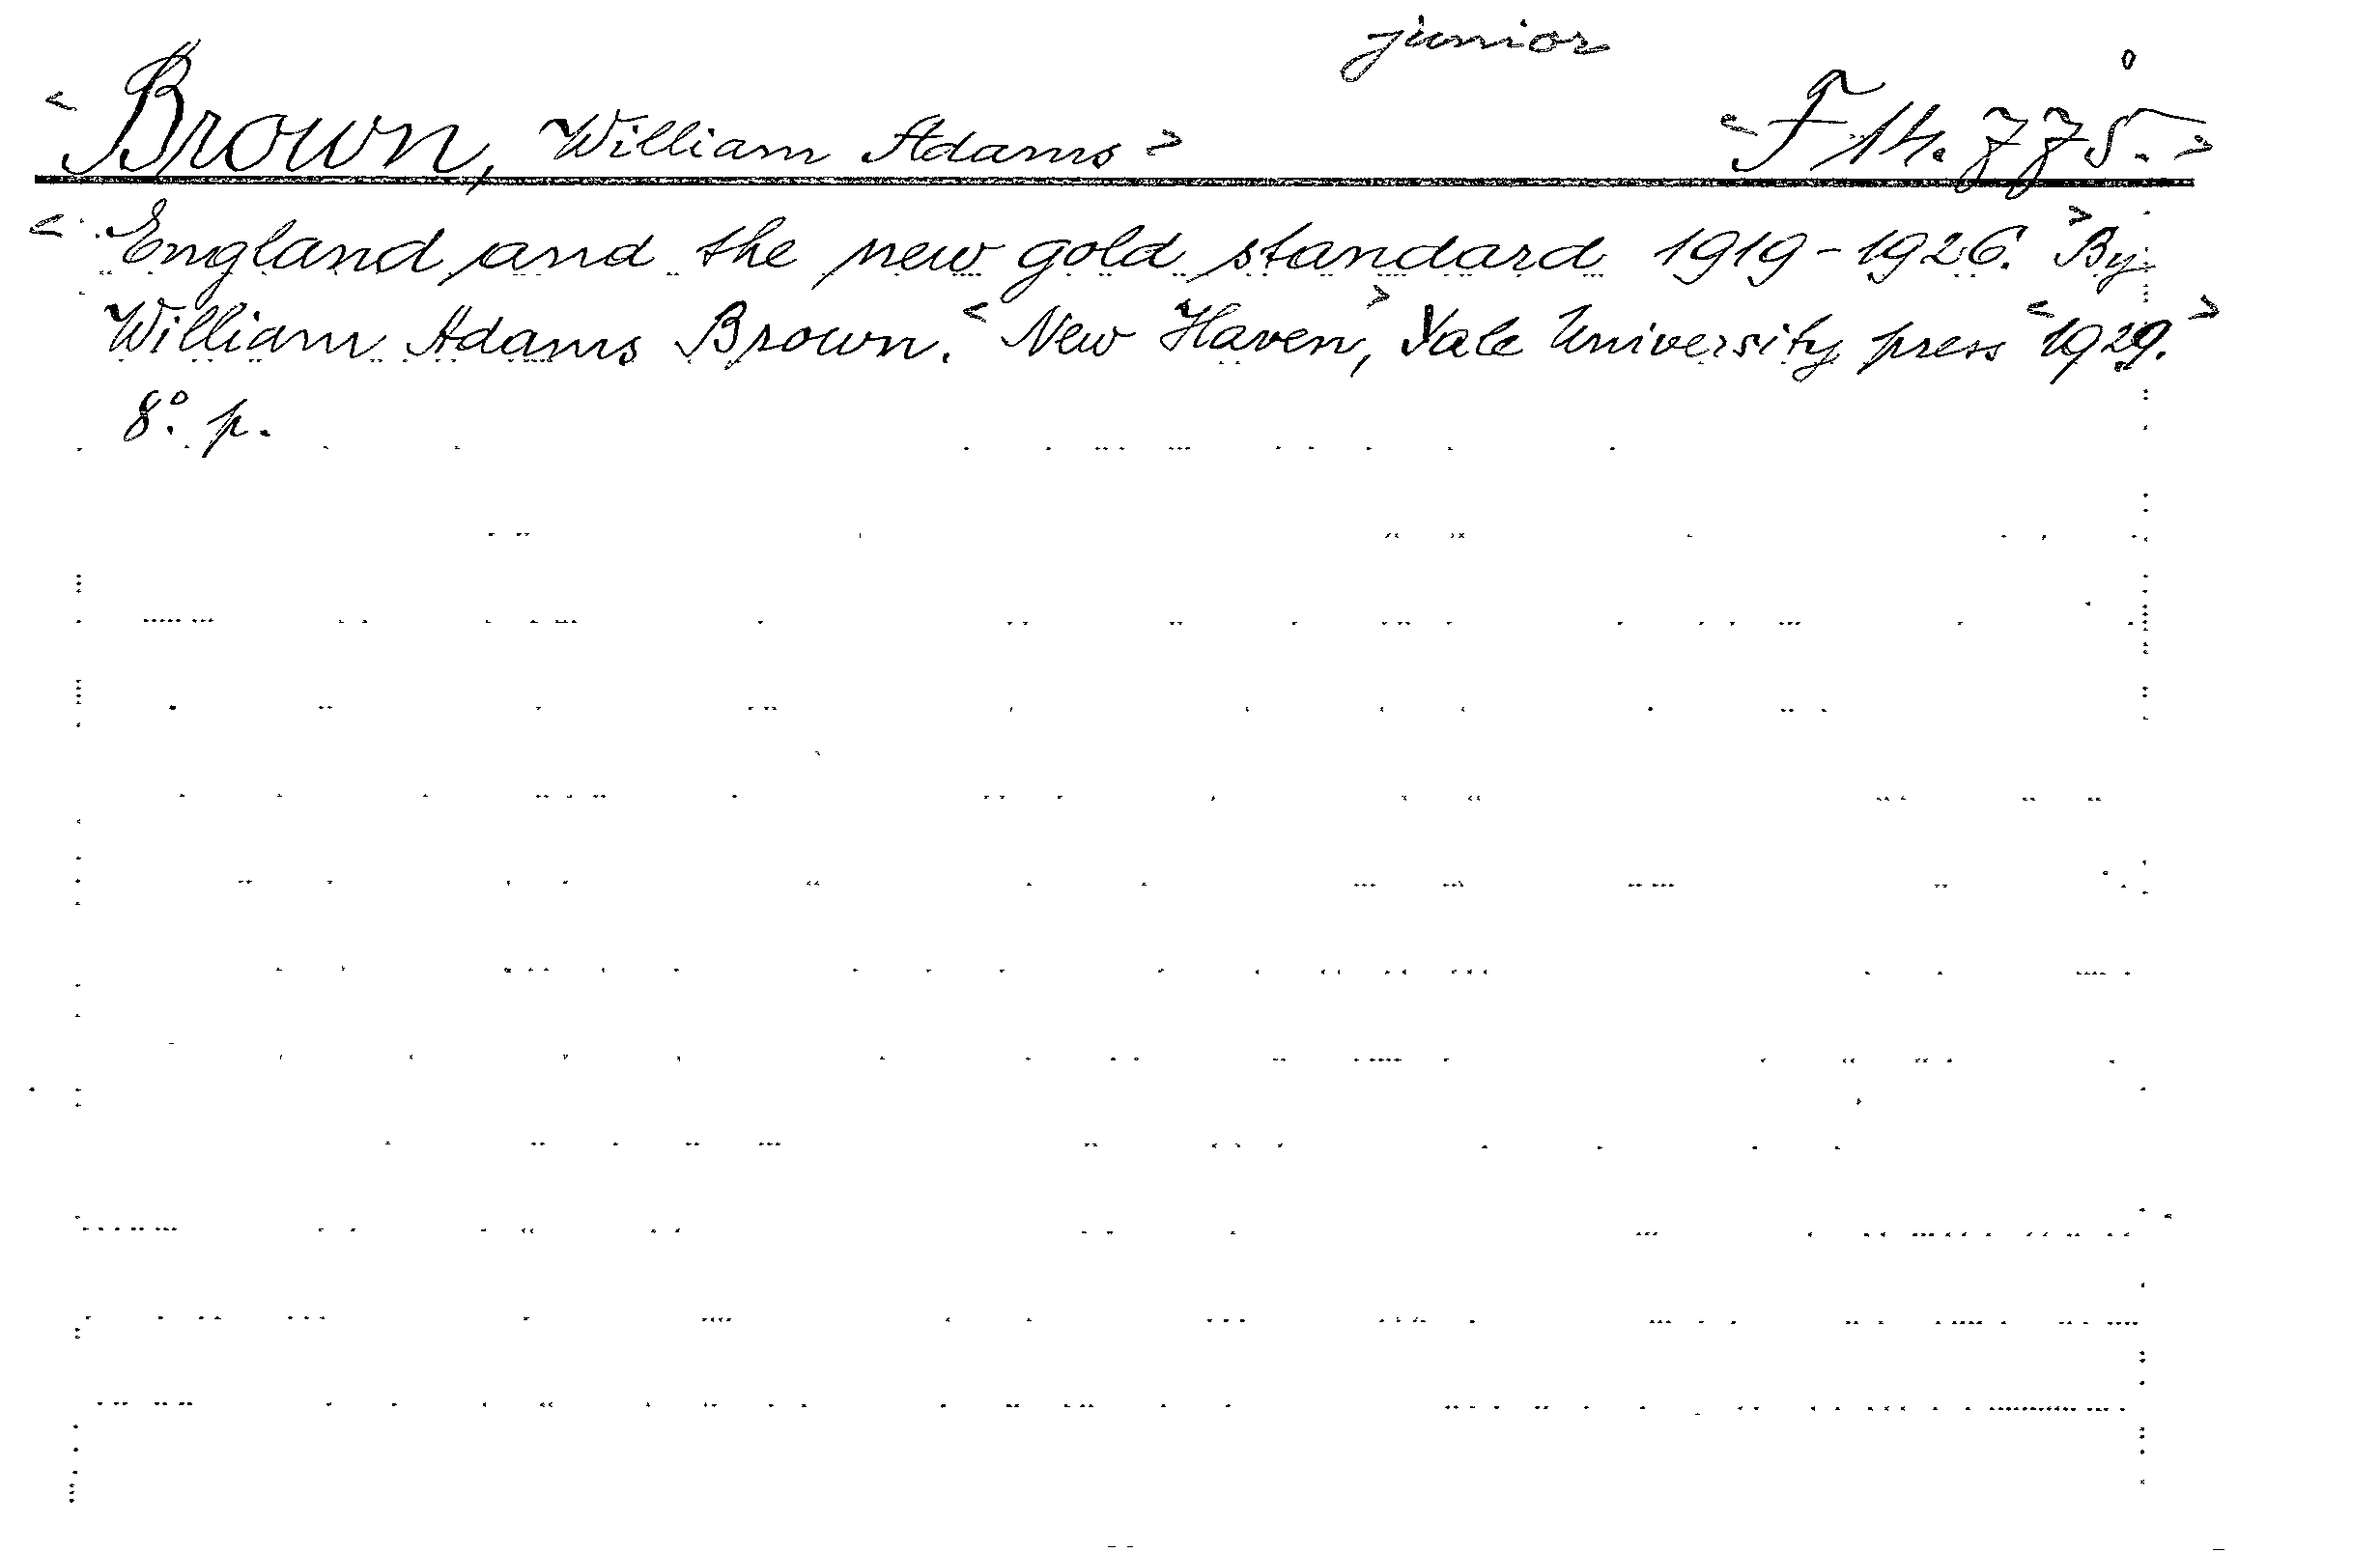 junior
< Brown, William Adams > < F 14.775. >
< England and the new gold standard 1919-1926. > By
William Adams Brown. < New Haven, > Yale University press < 1929. >
8°. p.